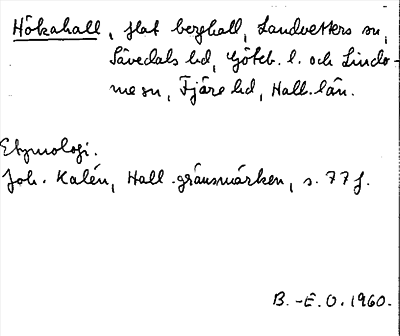 Hökahall, flat berghall, Landvetters sn,
Sävedals hd, Göteb. l. och Lindo-
me sn, Fjäre hd, Hall. län.
Etymologi.
Joh. Kalén, Hall. gränsmärken, s. 77 f.
B.-E. O. 1960.